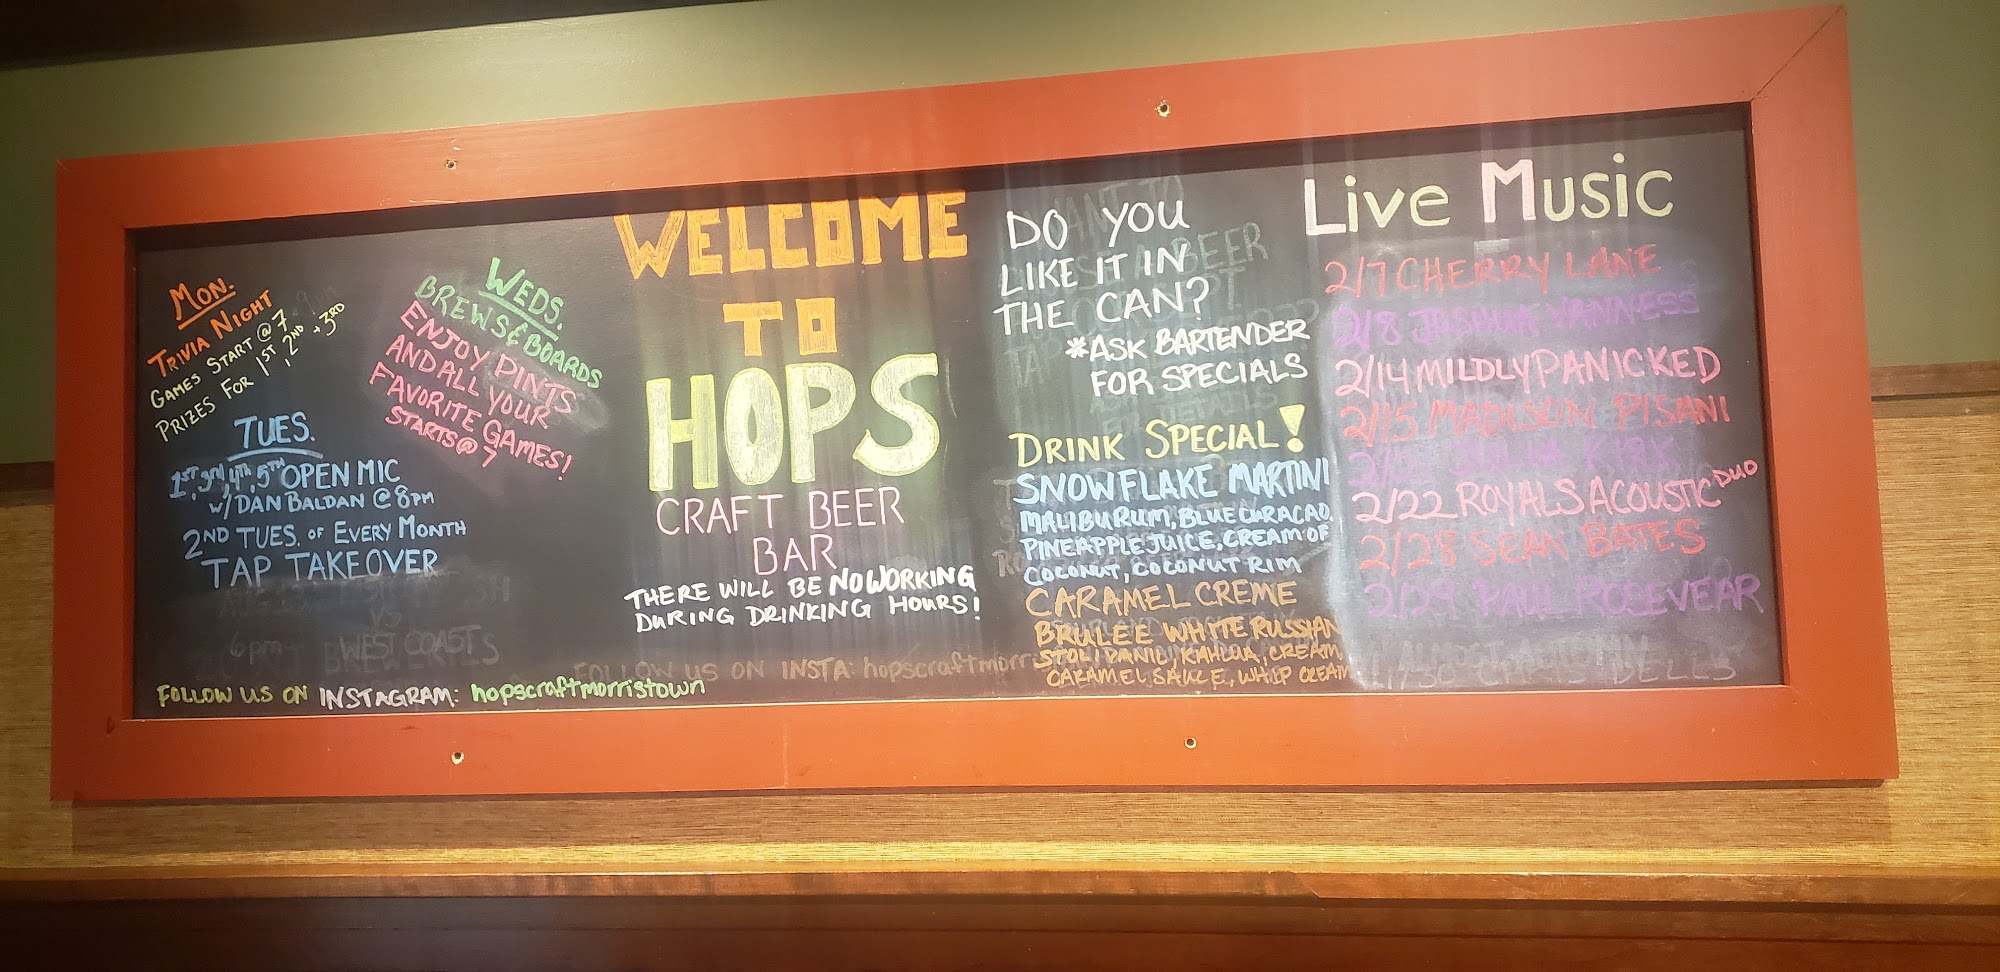 MON.
TRIVIA NIGHT
GAMES START @ 7
PRIZES FOR 1ST, 2ND + 3RD
TUES.
1ST, 3rd, 4TH, 5TH OPEN MIC
w/ DAN BALDAN @ 8PM
2ND TUES. OF EVERY MONTH
TAP TAKEOVER
6pm WEST COAST
WEDS.
BREWS & BOARDS
ENJOY PINTS
AND ALL YOUR
FAVORITE GAMES!
STARTS @ 7
WELCOME
TO
HOPS
CRAFT BEER
BAR
THERE WILL BE NO WORKING
DURING DRINKING HOURS!
FOLLOW US ON INSTA: hopscraftmorri
FOLLOW US ON INSTAGRAM: hopscraftmorristown
DO YOU
LIKE IT IN
THE CAN?
*ASK BARTENDER
FOR SPECIALS
DRINK SPECIAL!
SNOWFLAKE MARTINI
MALIBU RUM, BLUE CURACAO,
PINEAPPLE JUICE, CREAM OF
COCONUT, COCONUT RIM
CARAMEL CREME
BRULEE WHITE RUSSIAN
STOLI VANIL, KAHLUA, CREAM,
CARAMEL SAUCE, WHIP CREAM
Live Music
2/7 CHERRY LANE
2/8 VANNESS
2/14 MILDLY PANICKED
2/15 MADISON PISANI
KIRK
2/22 ROYALS ACOUSTIC DUO
2/28 SEAN BATES
2/29 PAUL ROSEVEAR